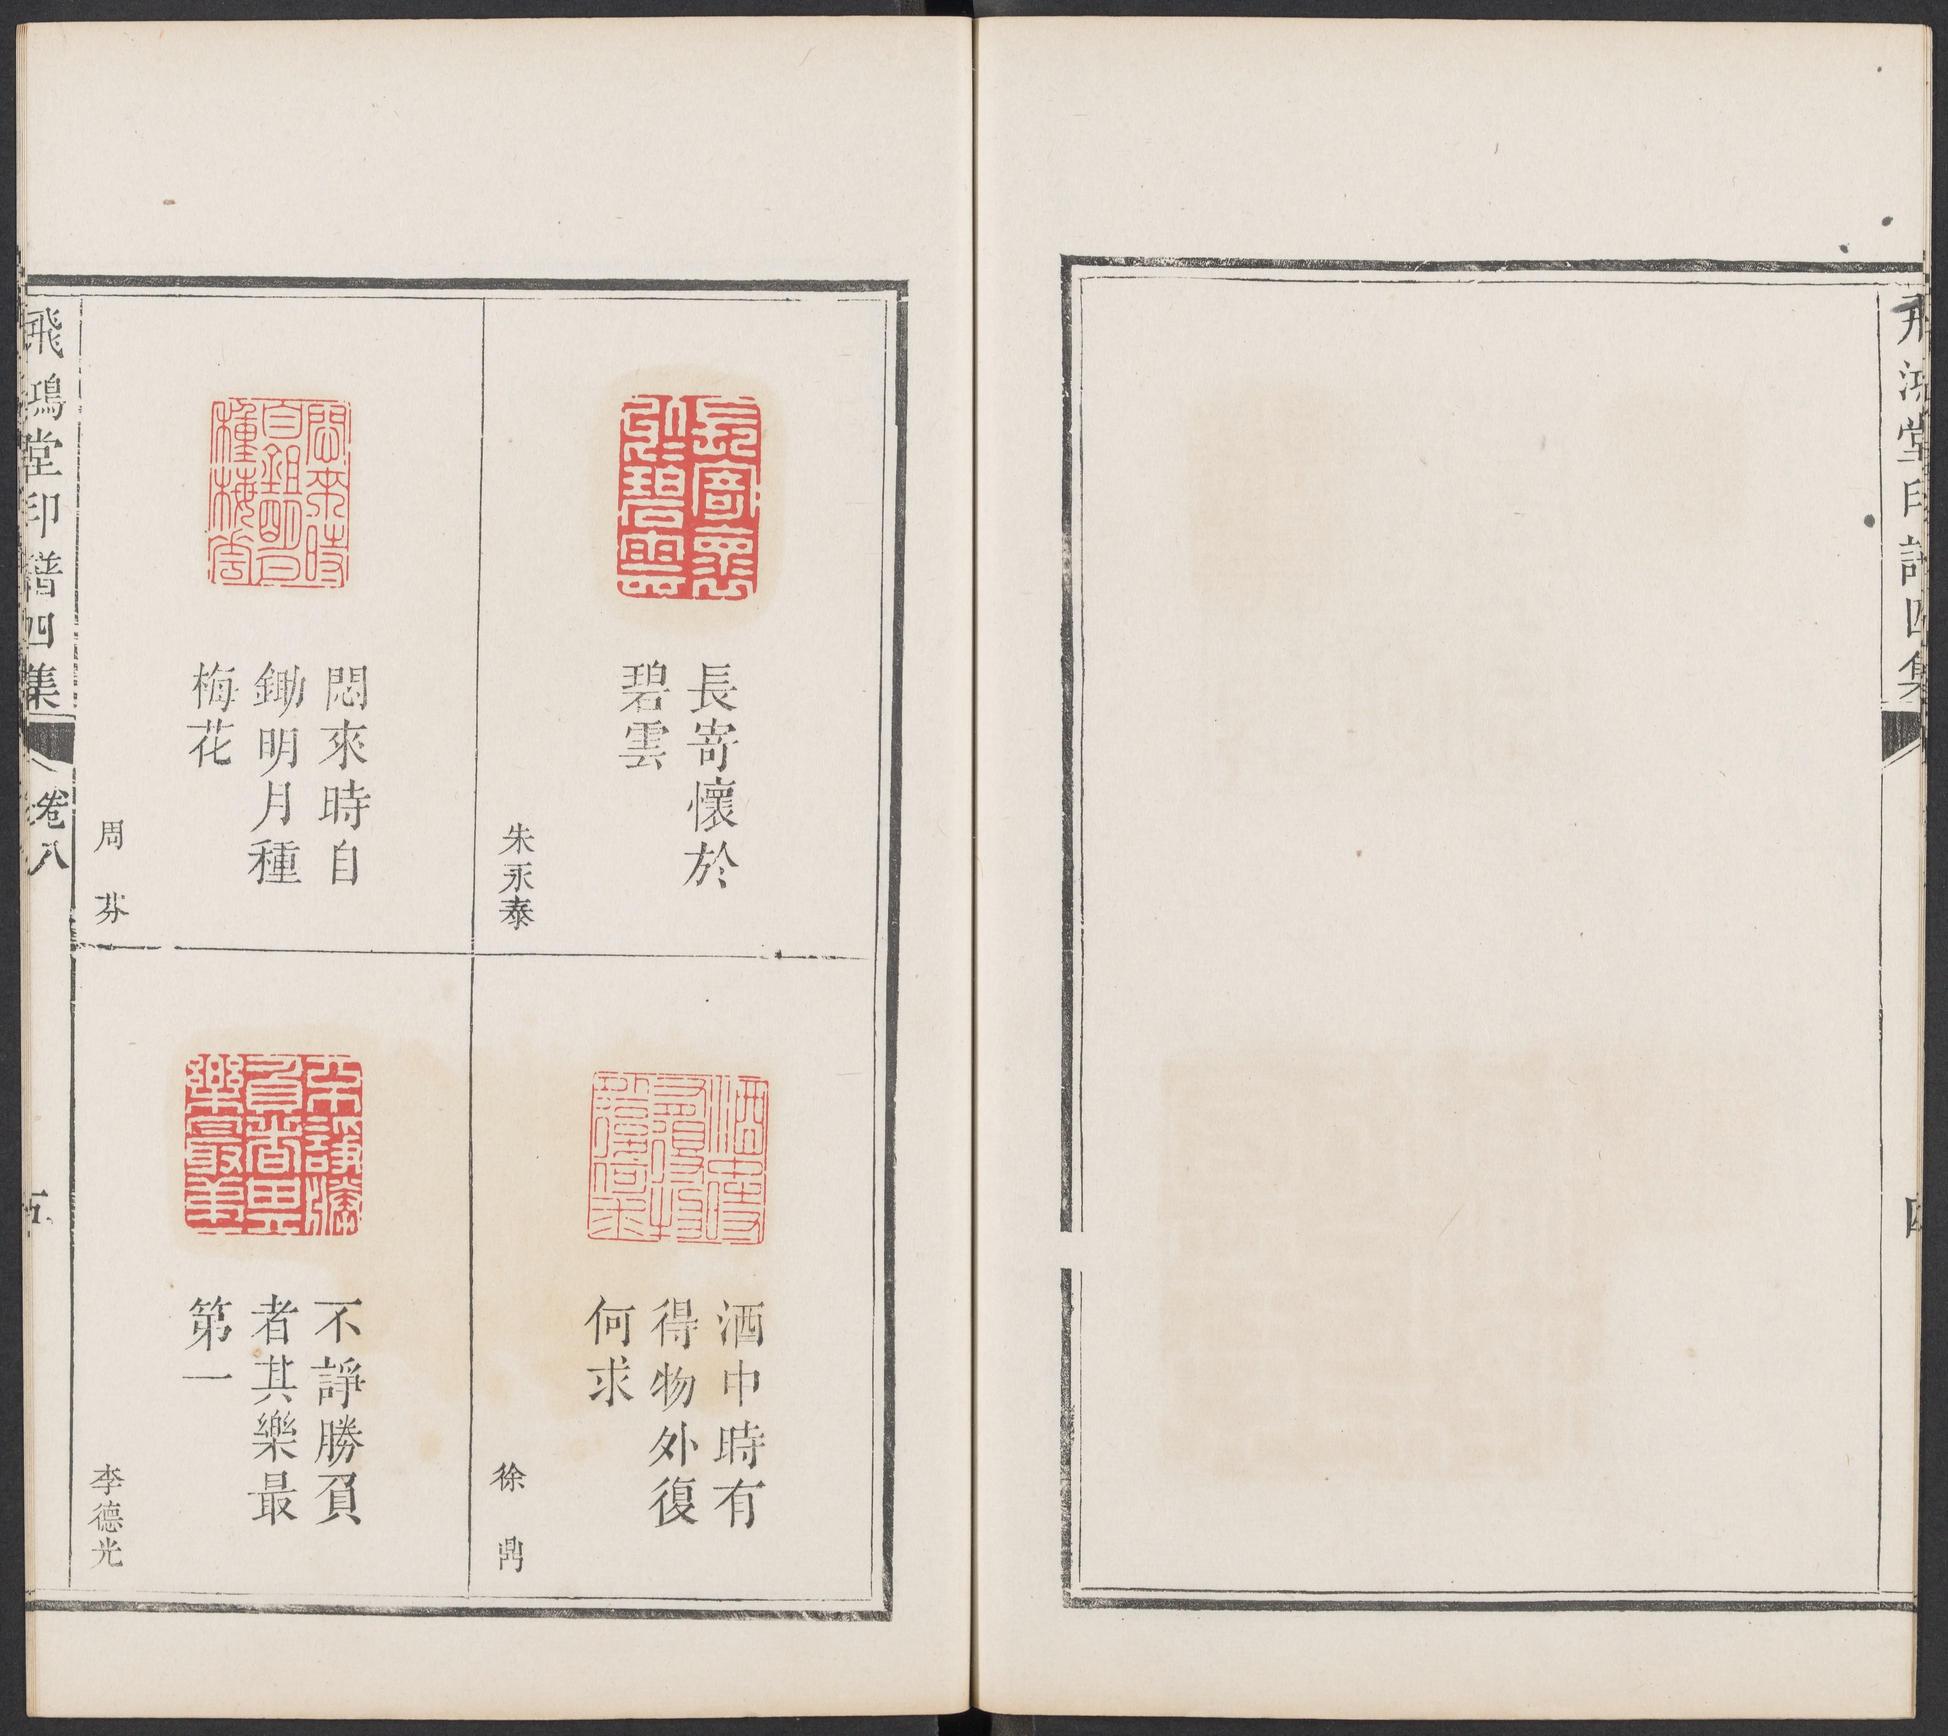 飛鴻堂印譜四集
四
長寄懷於
碧雲
朱永泰
悶來時自
鋤明月種
梅花
周芬
酒中時有
得物外復
何求
徐鼎
不諍勝負
者其樂最
第一
李德光
飛鴻堂印譜四集
卷八
五